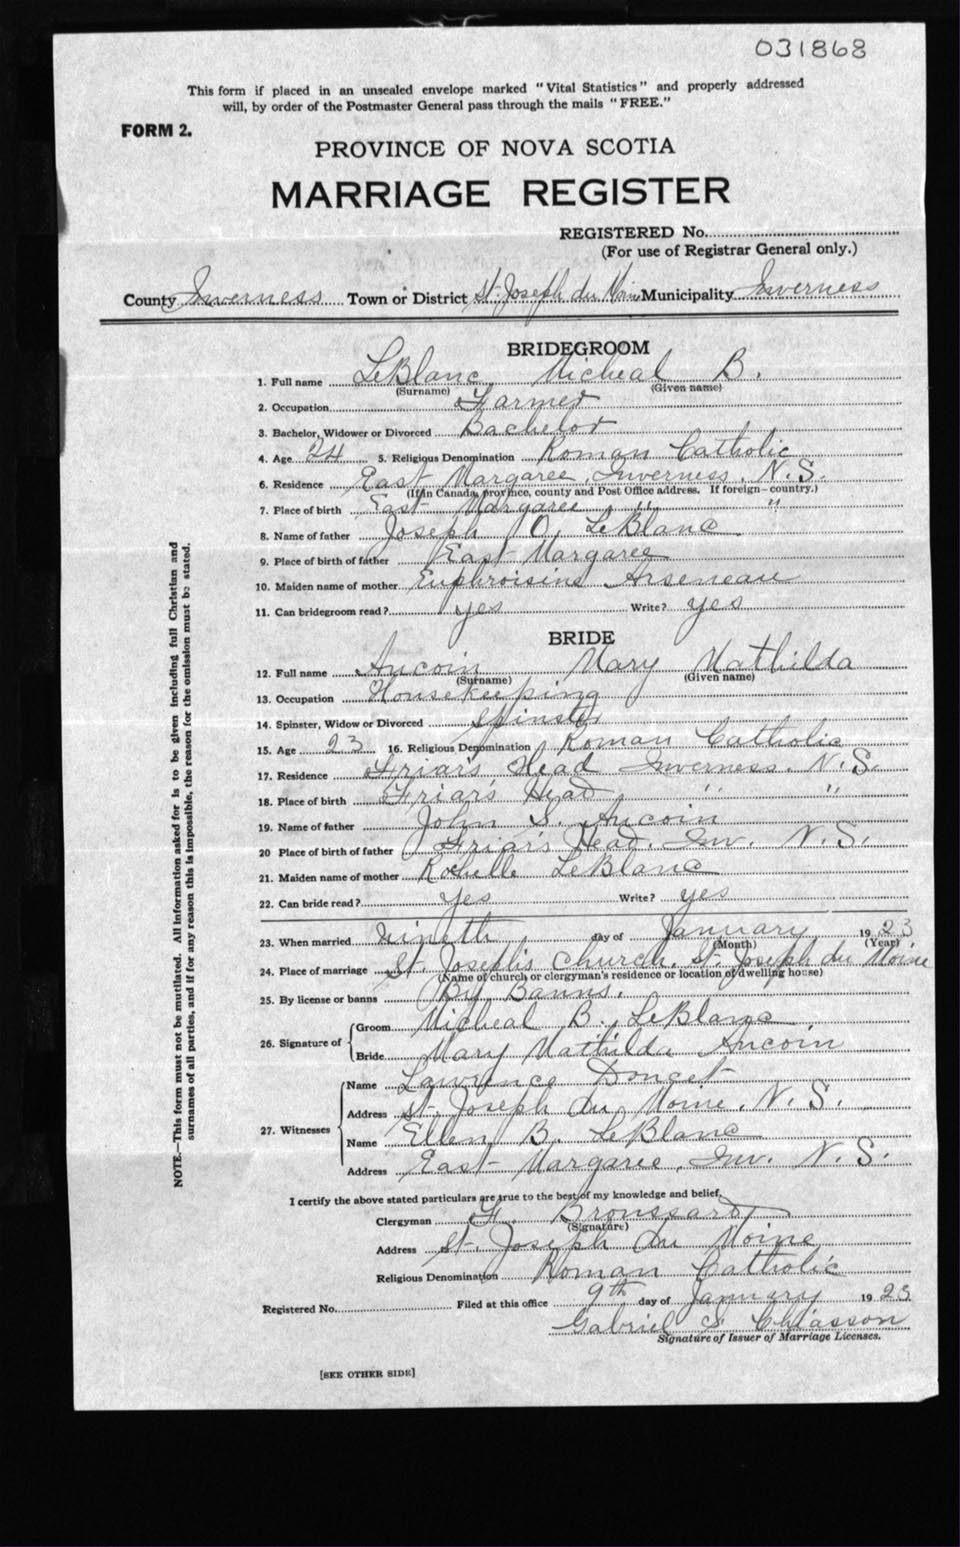 031868
This form if placed in an unsealed envelope marked "Vital Statistics" and properly addressed
will, by order of the Postmaster General pass through the mails "FREE."
FORM 2.
PROVINCE OF NOVA SCOTIA
MARRIAGE REGISTER
REGISTERED No.
(For use of Registrar General only.)
County Inverness Town or District St. Joseph du Moine Municipality Inverness
BRIDEGROOM
1. Full name LeBlanc, Micheal B.
(Surname) (Given name)
2. Occupation Farmer
3. Bachelor, Widower or Divorced Bachelor
4. Age 24 5. Religious Denomination Roman Catholic
6. Residence East Margaree, Inverness, N.S.
(If in Canada, province, county and Post Office address. If foreign—country.)
7. Place of birth East Margaree " "
8. Name of father Joseph O. LeBlanc
9. Place of birth of father East Margaree
10. Maiden name of mother Euphroisine Arseneau
11. Can bridegroom read? yes Write? yes
BRIDE
12. Full name Aucoin Mary Mathilda
(Surname) (Given name)
13. Occupation Housekeeping
14. Spinster, Widow or Divorced Spinster
15. Age 23 16. Religious Denomination Roman Catholic
17. Residence Friar's Head Inverness. N.S.
18. Place of birth Friar's Head " "
19. Name of father John S. Aucoin
20 Place of birth of father Friar's Head, Inv. N.S.
21. Maiden name of mother LeBlanc
22. Can bride read? yes Write? yes
23. When married nineth day of January 1923
(Month) (Year)
24. Place of marriage St. Joseph's Church, St. Joseph du Moine
(Name of church or clergyman's residence or location of dwelling house)
25. By license or banns By Banns.
26. Signature of Groom Micheal B. LeBlanc
Bride Mary Mathilda Aucoin
27. Witnesses Name Lawrence Doucet
Address St. Joseph du Moine, N.S.
Name Ellen B. LeBlanc
Address East Margaree, Inv. N.S.
I certify the above stated particulars are true to the best of my knowledge and belief.
Clergyman Broussard
(Signature)
Address St. Joseph du Moine
Religious Denomination Roman Catholic
Registered No. Filed at this office 9th day of January 1923
Gabriel S. Chiasson
Signature of Issuer of Marriage Licenses.
[SEE OTHER SIDE]
NOTE.—This form must not be mutilated. All information asked for is to be given including full Christian and
surnames of all parties, and if for any reason this is impossible, the reason for the omission must be stated.